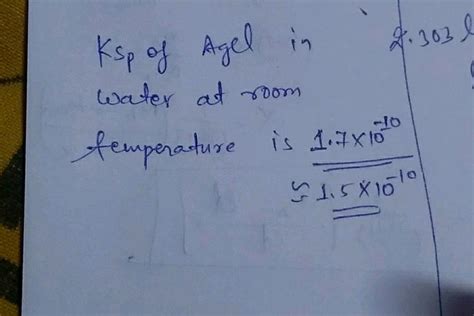 Ksp of Agcl in
water at room
temperature is 1.7×10⁻¹⁰
≈ 1.5×10⁻¹⁰
2.303